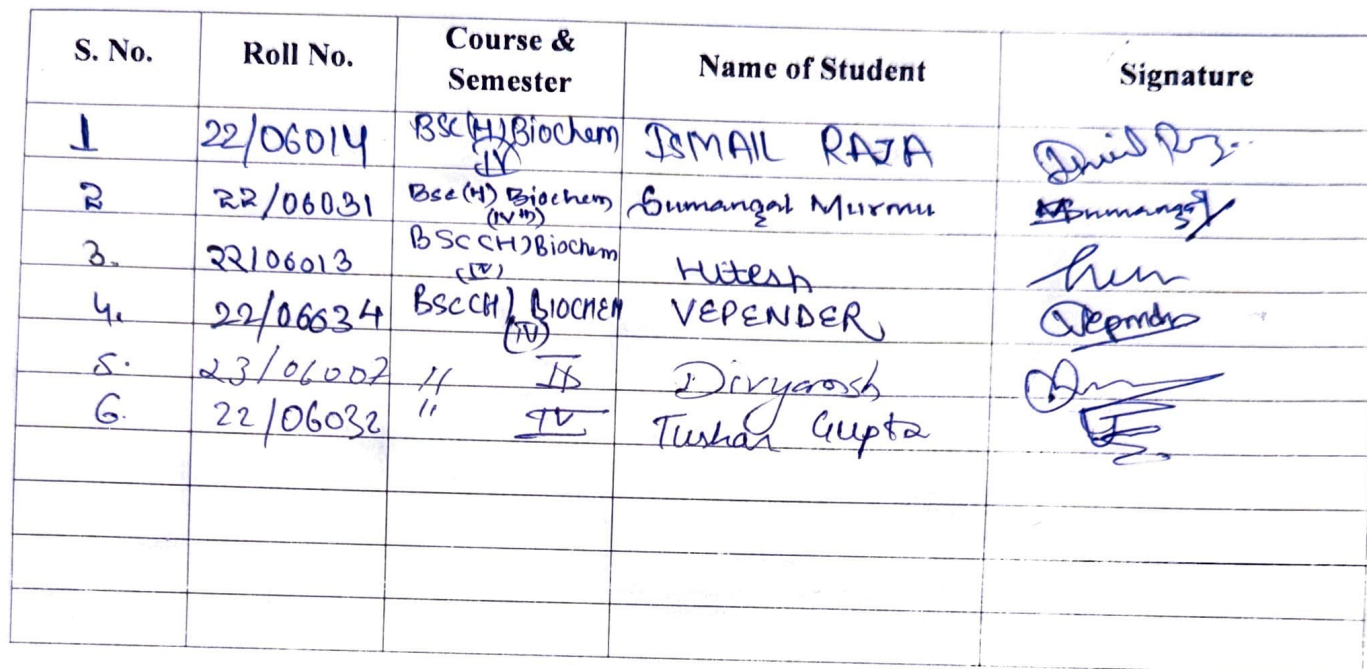 S. No. Roll No. Course & Semester Name of Student Signature
1 22/06014 BSC(H) Biochem (IV) ISMAIL RAZA
2 22/06031 Bsc(H) Biochem (IVth) Sumangal Murmu Sumangal
3. 22106013 BSC(H) Biochem (IV) Hitesh
4. 22/06034 BSC(H) BIOCHEM (IV) VEPENDER Vepender
5. 23/06007 " II Divyansh
6. 22/06032 " IV Tushar Gupta